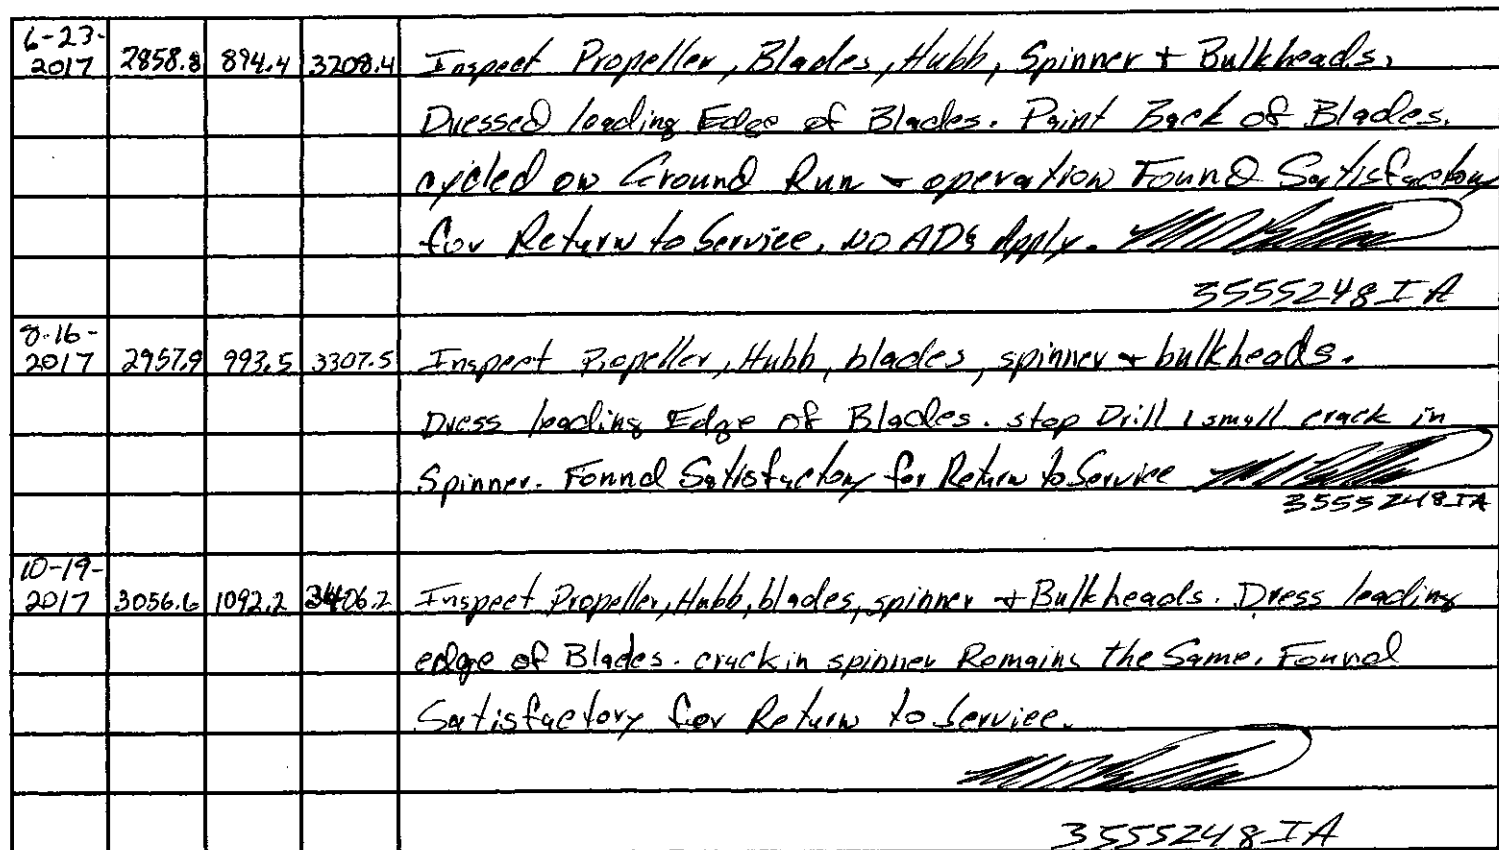 6-23-
2017 2858.8 894.4 3208.4 Inspect Propeller, Blades, Hubb, Spinner + Bulkheads.
Dressed leading Edge of Blades. Paint Back of Blades.
cycled on Ground Run - operation Found Satisfactory
for Return to Service, NO ADs Apply.
3555248IA
8-16-
2017 2957.9 993.5 3307.5 Inspect Propeller, Hubb, blades, spinner + bulkheads.
Dress leading Edge of Blades. stop Drill 1 small crack in
Spinner. Found Satisfactory for Return to Service
3555248IA
10-19-
2017 3056.6 1092.2 3406.2 Inspect Propeller, Hubb, blades, spinner + Bulkheads. Dress leading
edge of Blades. crack in spinner Remains the Same. Found
Satisfactory for Return to Service.
3555248IA